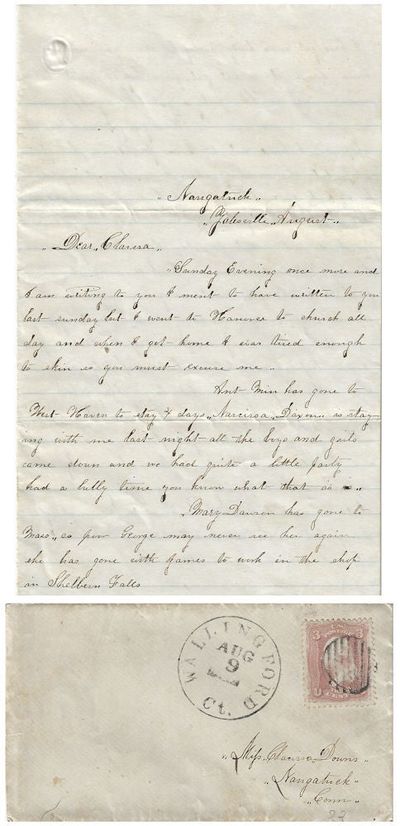 „ Naugatuck „
„ Yalesville „ August „
„ Dear „ Clarisa „
„ Sunday Evening once more and
I am writing to you I ment to have written to you
last sunday but I went to Hanover to church all
day and when I got home I was tired enough
to skin so you must excuse me „
Ant Min has gone to
West Haven to stay 4 days „ Narcissa „ Dixon „ is stay-
ing with me last night all the boys and gails
came down and we had quite a little party
had a bully time you know what that is „
„ Mary Dawson has gone to
Mass „ so poor George may never see her again
she has gone with James to work in the shop
in Shelburn Falls
WALLINGFORD
AUG
9
Ct.
3 3
U CENTS
„ Miss Clarissa Downs „
„ Naugatuck „
„ Conn „